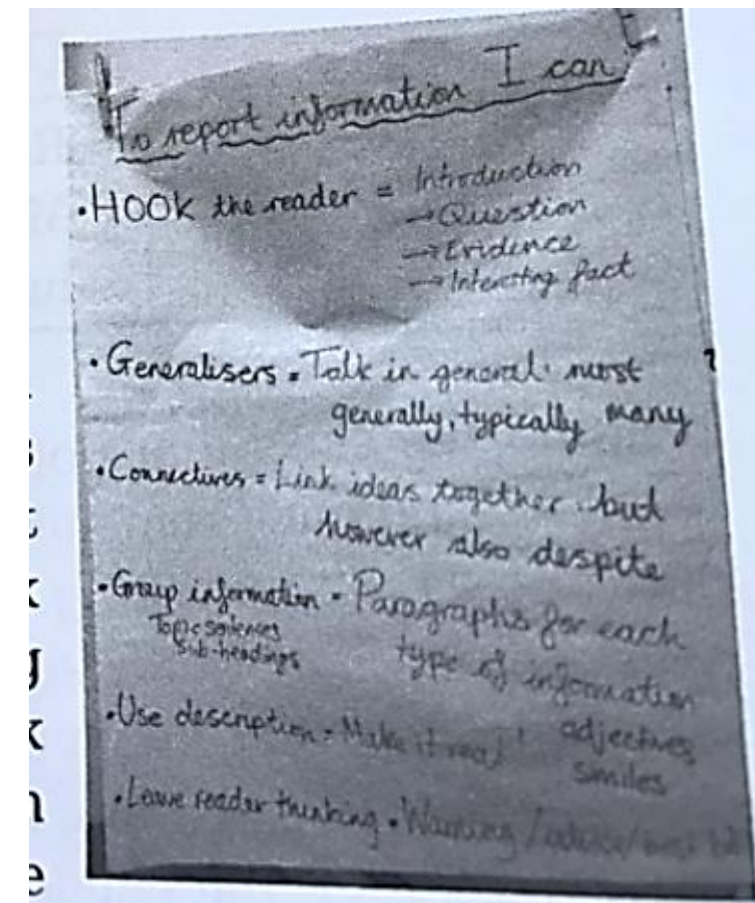 To report information I can
• HOOK the reader = Introduction
→ Question
→ Evidence
→ Interesting fact
• Generalisers = Talk in general. most
generally, typically many
• Connectives = Link ideas together. but
however also despite
• Group information = Paragraphs for each
Topic sentences
Sub-headings
type of information
• Use description = Make it real!
adjectives
similes
• Leave reader thinking = Warning /advice/